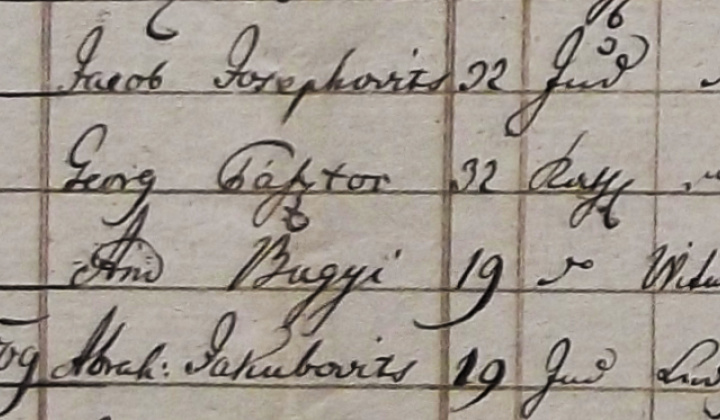 Jacob Josephovits 32 Jud
Georg Pásztor 32 Kath
And Bugyi 19 do
Abrah: Jakubovits 19 Jud